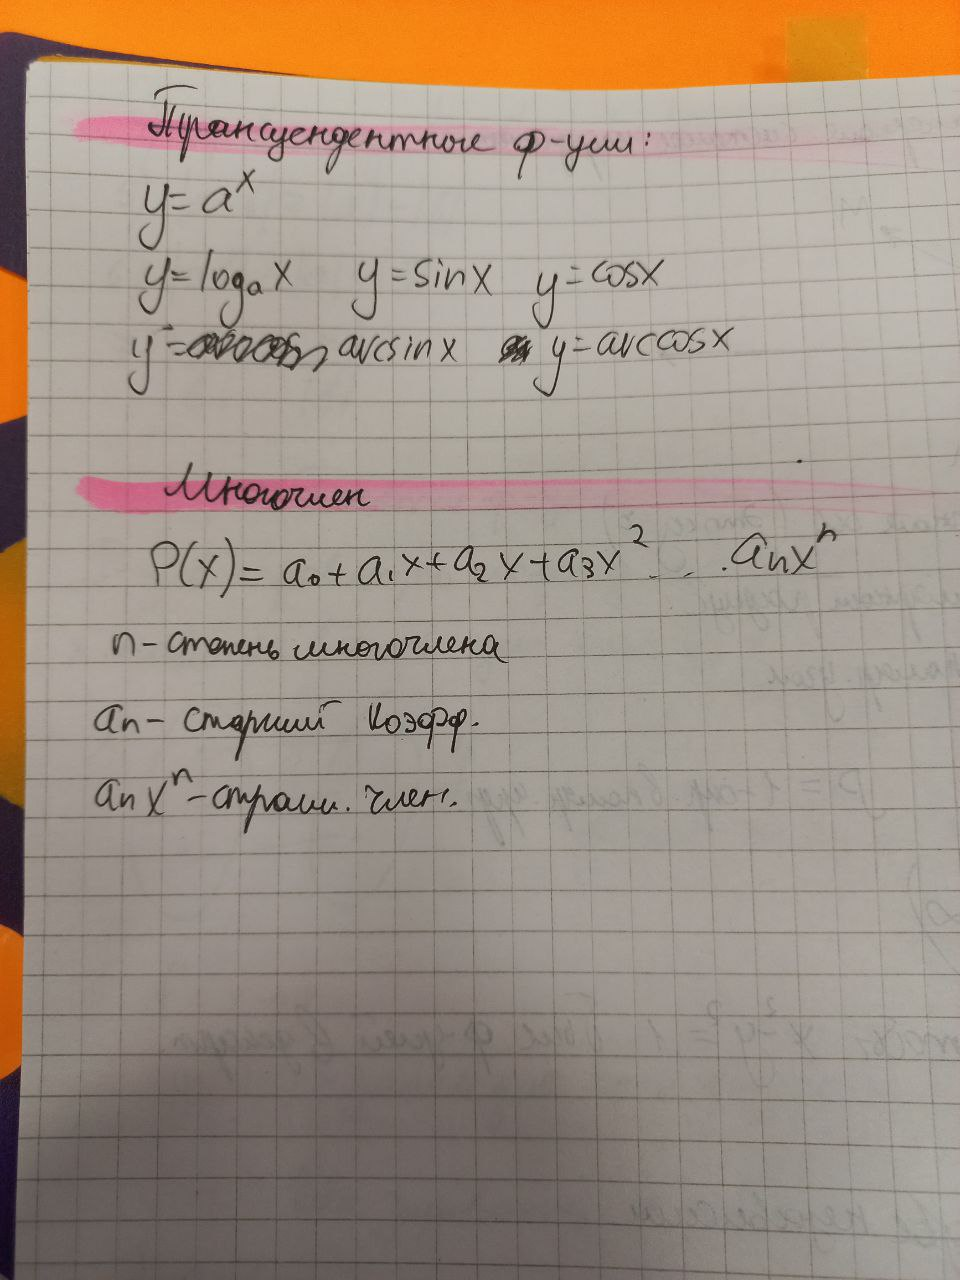 Трансцендентные ф-ции:
y = a^x
y = log_a x y = sin x y = cos x
y = arcsin x y = arccos x
Многочлен
P(x) = a₀ + a₁x + a₂x + a₃x² ... aₙxⁿ
n - степень многочлена
aₙ - старший коэфф.
aₙxⁿ - страш. член.